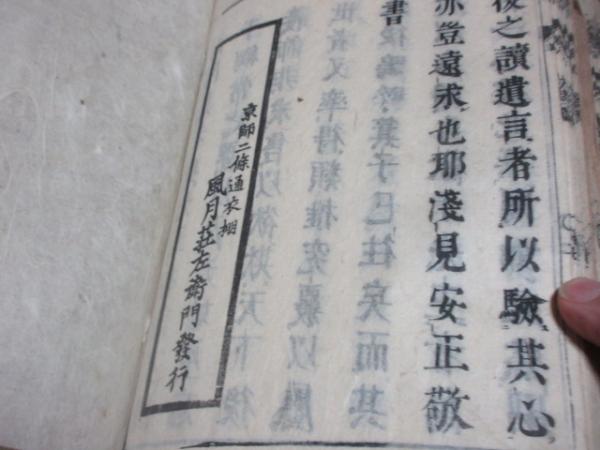 後之讀遺言者所以驗其心
亦豈遠求也耶淺見安正敬
書
京師二條通衣棚
風月莊左衛門發行